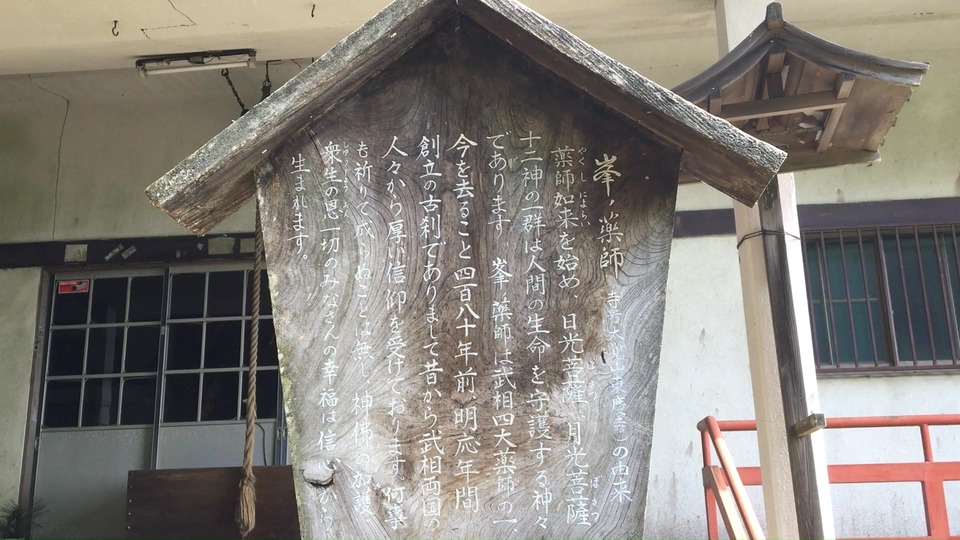 峯ノ薬師 寺普大山東慶寺)の由来
薬師如来を始め、日光菩薩 月光菩薩
やくしにょらい
ぼさつ
十二神の一群は人間の生命を守護する神々
であります 峯ノ薬師は武相四大薬師の一
今を去ること四百八十年前、明応年間
創立の古刹でありまして昔から武相両国の
人々から厚い信仰を受けております。何事
も祈りて成らぬことは無し、神佛の加護
衆生の恩一切のみなさんの幸福は信心から
生まれます。